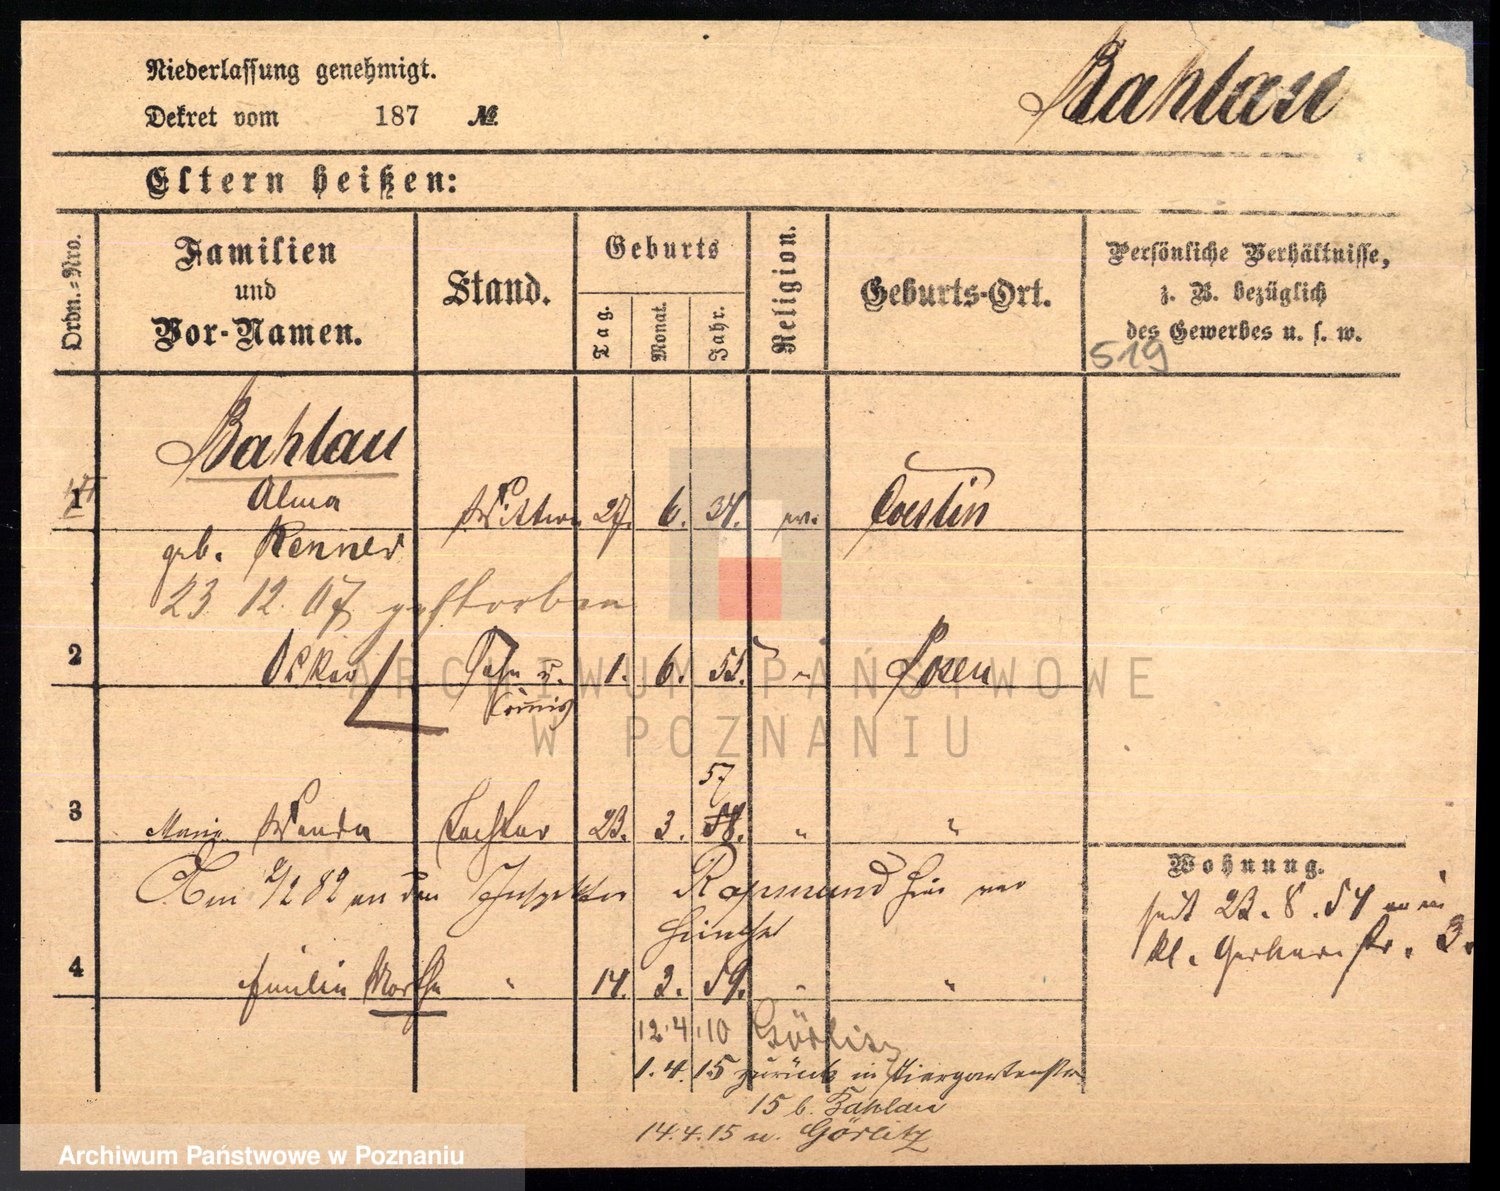 Niederlassung genehmigt.
Dekret vom 187 №.
Bahlau
Eltern heißen:
Ordn.-Nro.
Familien und Vor-Namen.
Stand.
Geburts
Tag.
Monat.
Jahr.
Religion.
Geburts-Ort.
Persönliche Verhältnisse, z. B. bezüglich des Gewerbes u. s. w.
519
Bahlau
1 Alma Wittwe 27. 6. 34. ev. Coeslin
geb. Renner
23 12. 07 gestorben
2 Oskar Sohn u. 1. 6. 55. " Posen
Commis
57
3 Maria Wanda Tochter 23. 3. 58. " "
Am 2/2 82 an den Inspektor Rapmund hier ver
Wohnung.
seit 23. 8. 54
kl. Gerberstr. 3.
4 Emilie Martha " 14. 3. 59. " "
12.4.10 Görlitz
1.4.15 zurück in Tiergartenstr
15 b. Bahlau
14.4.15 n. Görlitz
ARCHIWUM PAŃSTWOWE
W POZNANIU
Archiwum Państwowe w Poznaniu